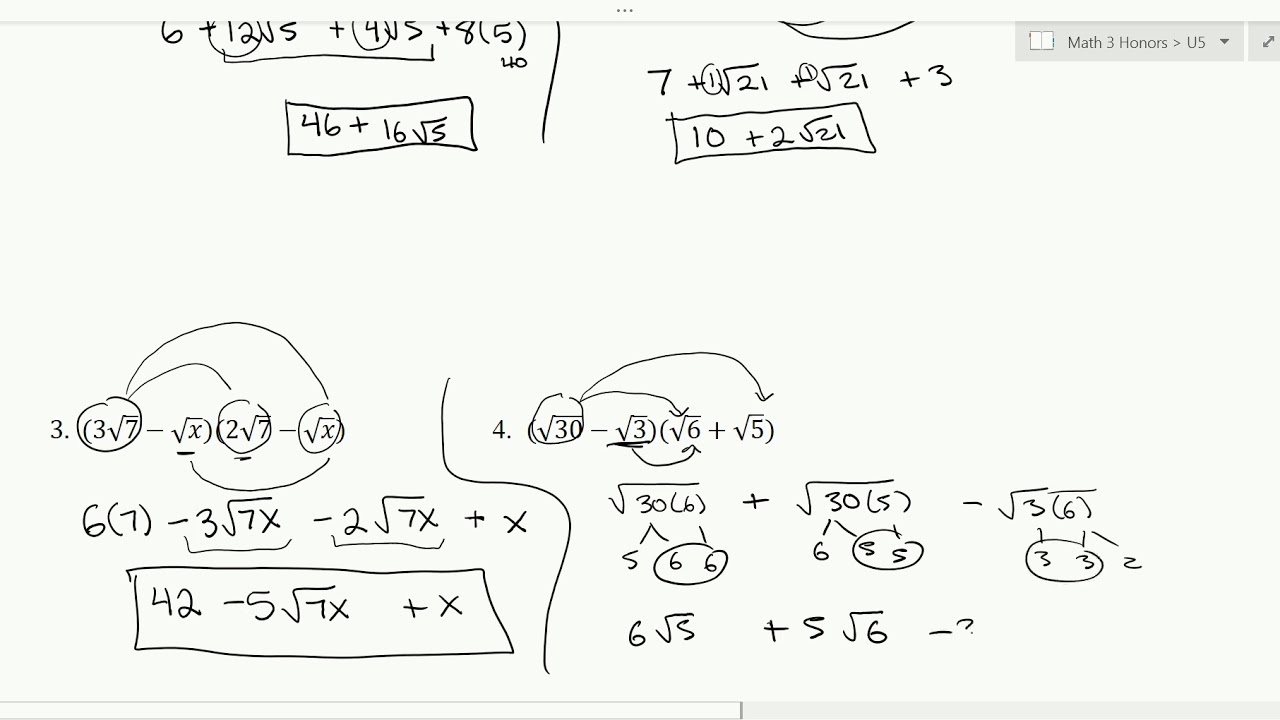 Math 3 Honors > U5
6 + 12√5 + 4√5 + 8(5)
40
46 + 16√5
7 + 1√21 + 1√21 + 3
10 + 2√21
3. (3√7 − √x)(2√7 − √x)
6(7) − 3√7x − 2√7x + x
42 − 5√7x + x
4. (√30 − √3)(√6 + √5)
√30(6) + √30(5) − √3(6)
5 6 6 6 5 5 3 3 2
6√5 + 5√6 −